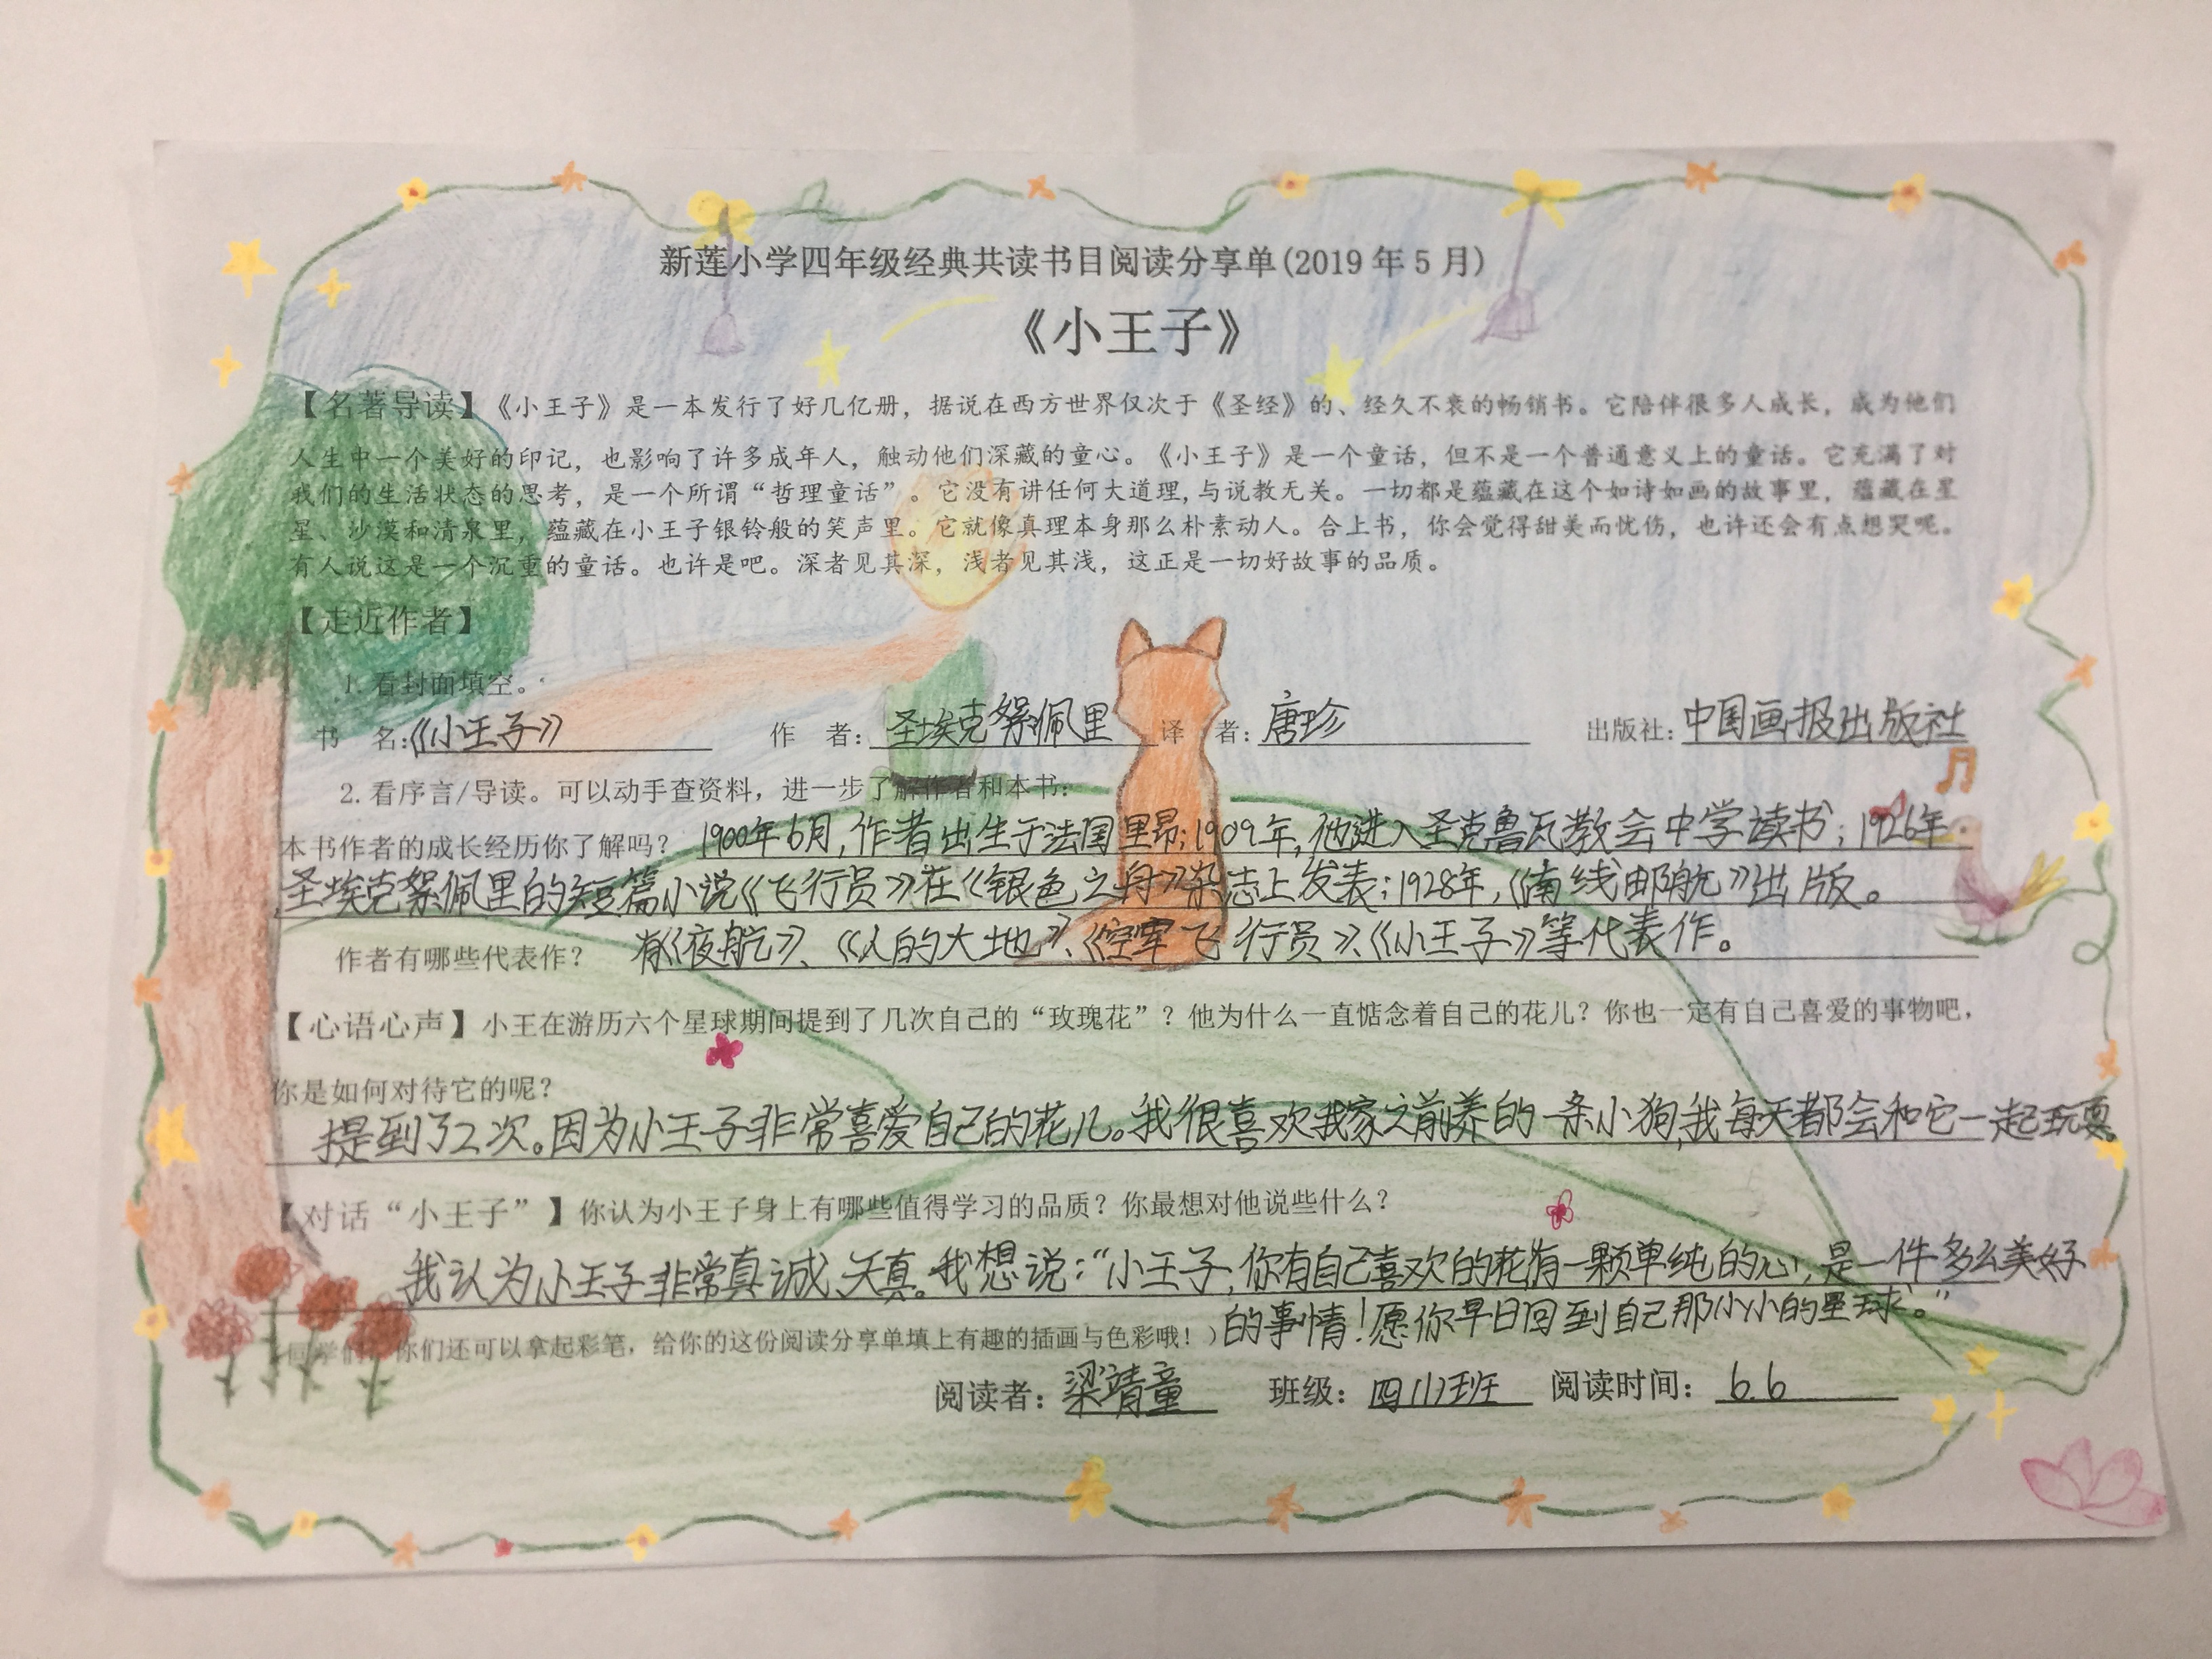 新莲小学四年级经典共读书目阅读分享单(2019年5月)
《小王子》
【名著导读】《小王子》是一本发行了好几亿册，据说在西方世界仅次于《圣经》的、经久不衰的畅销书。它陪伴很多人成长，成为他们
人生中一个美好的印记，也影响了许多成年人，触动他们深藏的童心。《小王子》是一个童话，但不是一个普通意义上的童话。它充满了对
我们的生活状态的思考，是一个所谓“哲理童话”。它没有讲任何大道理，与说教无关。一切都是蕴藏在这个如诗如画的故事里，蕴藏在星
星、沙漠和清泉里，蕴藏在小王子银铃般的笑声里。它就像真理本身那么朴素动人。合上书，你会觉得甜美而忧伤，也许还会有点想哭呢。
有人说这是一个沉重的童话。也许是吧。深者见其深，浅者见其浅，这正是一切好故事的品质。
【走近作者】
1.看封面填空。
书 名：《小王子》 作 者：圣埃克絮佩里 译 者：唐珍 出版社：中国画报出版社
2.看序言/导读。可以动手查资料，进一步了解作者和本书：
本书作者的成长经历你了解吗？ 1900年6月，作者出生于法国里昂；1909年，他进入圣克鲁瓦教会中学读书；1926年
圣埃克絮佩里的短篇小说《飞行员》在《银色之舟》杂志上发表；1928年，《南线邮航》出版。
作者有哪些代表作？ 有《夜航》、《人的大地》、《空军飞行员》、《小王子》等代表作。
【心语心声】小王在游历六个星球期间提到了几次自己的“玫瑰花”？他为什么一直惦念着自己的花儿？你也一定有自己喜爱的事物吧，
你是如何对待它的呢？
提到了2次。因为小王子非常喜爱自己的花儿。我很喜欢我家之前养的一条小狗，我每天都会和它一起玩耍。
【对话“小王子”】你认为小王子身上有哪些值得学习的品质？你最想对他说些什么？
我认为小王子非常真诚、天真。我想说：“小王子，你有自己喜欢的花，有一颗单纯的心，是一件多么美好
的事情！愿你早日回到自己那小小的星球。”
同学们，你们还可以拿起彩笔，给你的这份阅读分享单填上有趣的插画与色彩哦！）
阅读者：梁靖童 班级：四(1)班 阅读时间：6.6